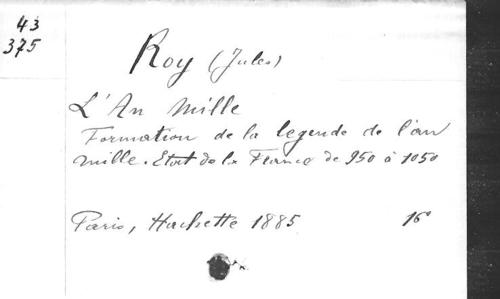 43
375
Roy (Jules)
L'An Mille
Formation de la legende de l'an
mille. Etat de la France de 950 à 1050
Paris, Hachette 1885 16°